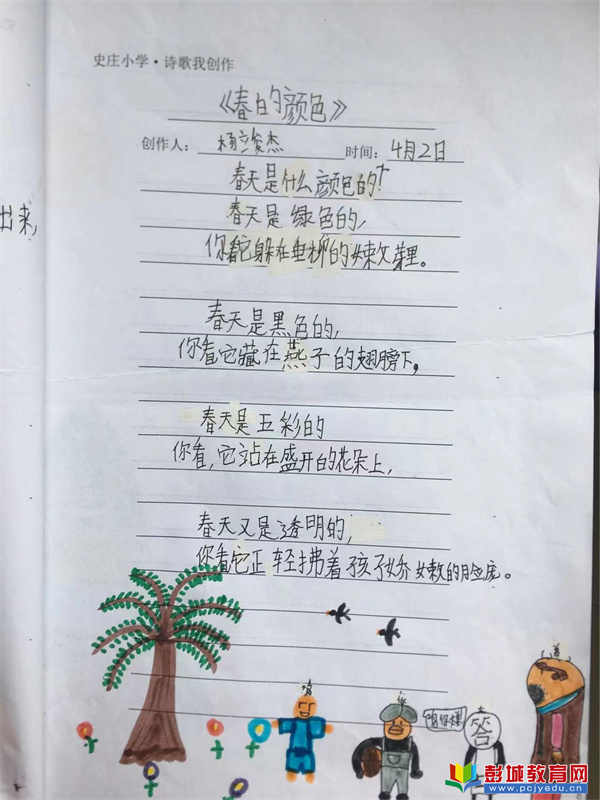 史庄小学·诗歌我创作
《春日的颜色》
创作人：杨俊杰 时间：4月2日
春天是什么颜色的？
春天是绿色的，
你看它躲在垂柳的嫩叶里。
春天是黑色的，
你看它藏在燕子的翅膀下，
春天是五彩的
你看，它站在盛开的花朵上，
春天又是透明的，
你看它正轻拂着孩子娇嫩的脸庞。
出来，
答
彭城教育网
www.pcjyedu.cn